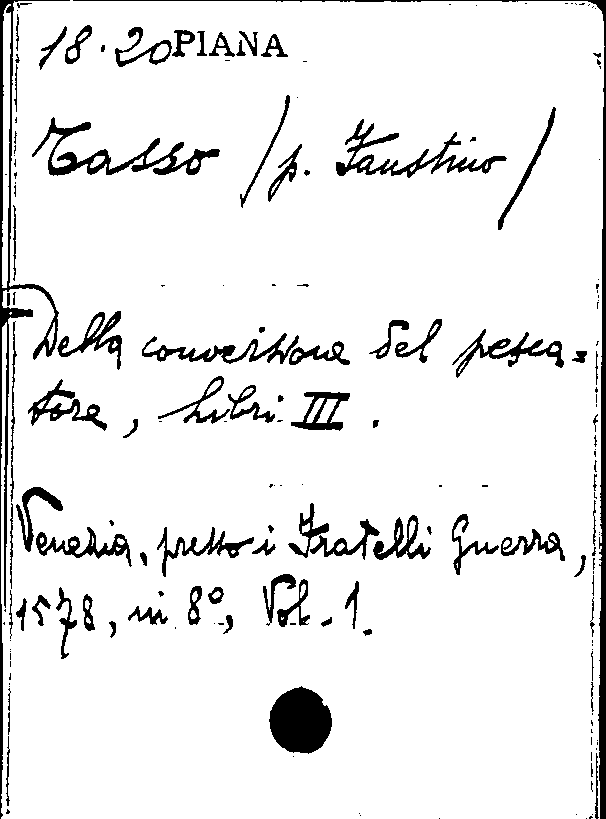 18.20 PIANA
Tasso / p. Faustino /
Della conversione del pesca=
tore, Libri III.
Venezia, presso i Fratelli Guerra,
1578, in 8°, Vol. 1.